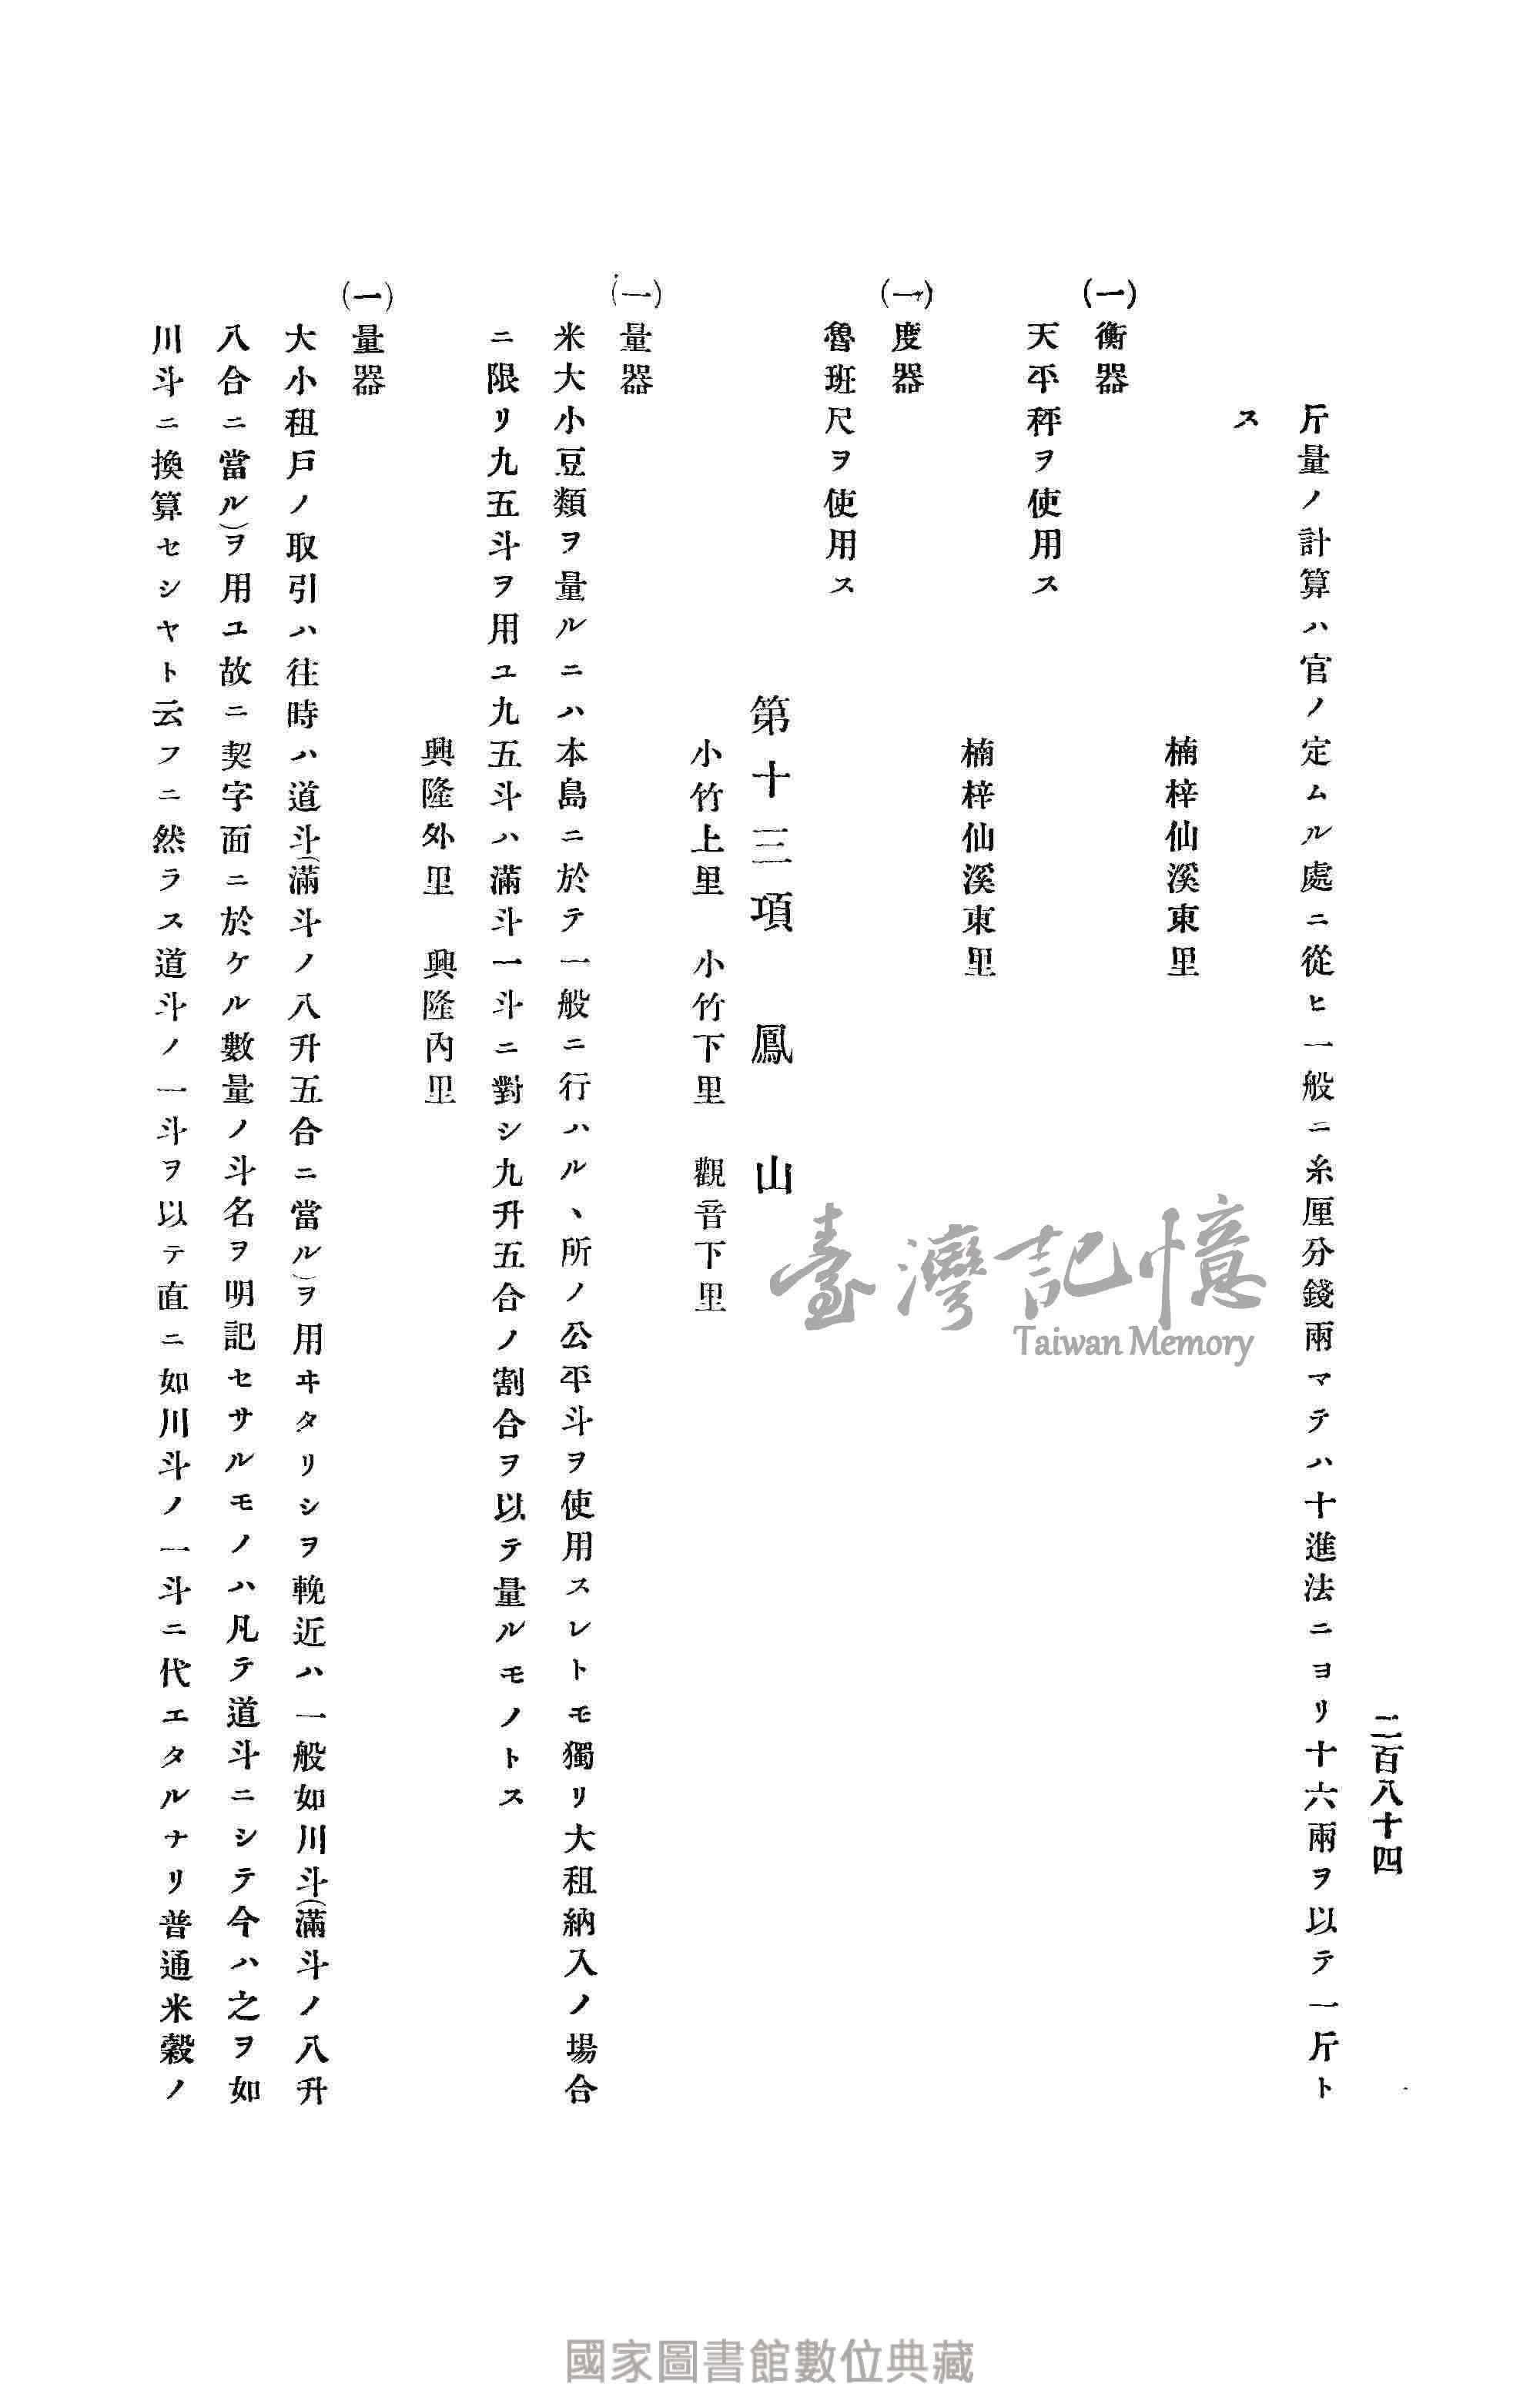 二百八十四
斤量ノ計算ハ官ノ定ムル處ニ從ヒ一般ニ糸厘分錢兩マテハ十進法ニヨリ十六兩ヲ以テ一斤ト
ス
楠梓仙溪東里
(一)衡器
天平秤ヲ使用ス
楠梓仙溪東里
(一)度器
魯班尺ヲ使用ス
第十三項 鳳山
小竹上里 小竹下里 觀音下里
(一)量器
米大小豆類ヲ量ルニハ本島ニ於テ一般ニ行ハルヽ所ノ公平斗ヲ使用スレトモ獨リ大租納入ノ場合
ニ限リ九五斗ヲ用ユ九五斗ハ滿斗一斗ニ對シ九升五合ノ割合ヲ以テ量ルモノトス
興隆外里 興隆內里
(一)量器
大小租戶ノ取引ハ往時ハ道斗(滿斗ノ八升五合ニ當ル)ヲ用ヰタリシヲ輓近ハ一般如川斗(滿斗ノ八升
八合ニ當ル)ヲ用ユ故ニ契字面ニ於ケル數量ノ斗名ヲ明記セサルモノハ凡テ道斗ニシテ今ハ之ヲ如
川斗ニ換算セシヤト云フニ然ラス道斗ノ一斗ヲ以テ直ニ如川斗ノ一斗ニ代エタルナリ普通米穀ノ
臺灣記憶
Taiwan Memory
國家圖書館數位典藏